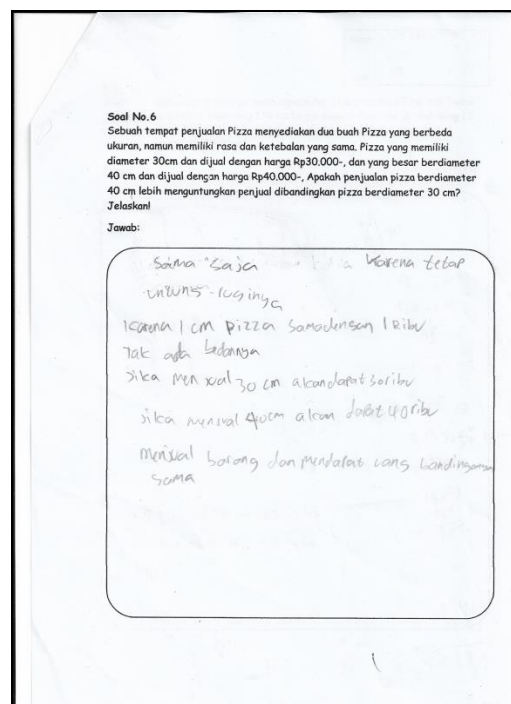 Soal No.6
Sebuah tempat penjualan Pizza menyediakan dua buah Pizza yang berbeda
ukuran, namun memiliki rasa dan ketebalan yang sama. Pizza yang memiliki
diameter 30cm dan dijual dengan harga Rp30.000-, dan yang besar berdiameter
40 cm dan dijual dengan harga Rp40.000-, Apakah penjualan pizza berdiameter
40 cm lebih menguntungkan penjual dibandingkan pizza berdiameter 30 cm?
Jelaskan!
Jawab:
Sama saja karena tetap
untung-ruginya
karena 1 cm pizza sama dengan 1 Ribu
Tak ada bedanya
Jika menjual 30 cm akan dapat 30 ribu
jika menjual 40cm akan dapat 40 ribu
menjual barang dan mendapat uang bandingannya
sama